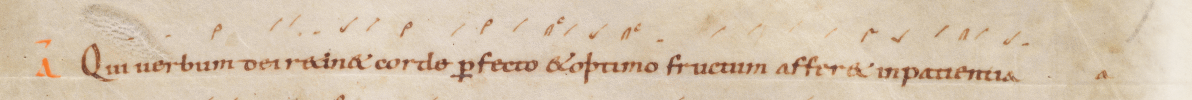 A Qui uerbum dei r&in& corde ꝑfecto &optimo fructum affer& inpatientia a